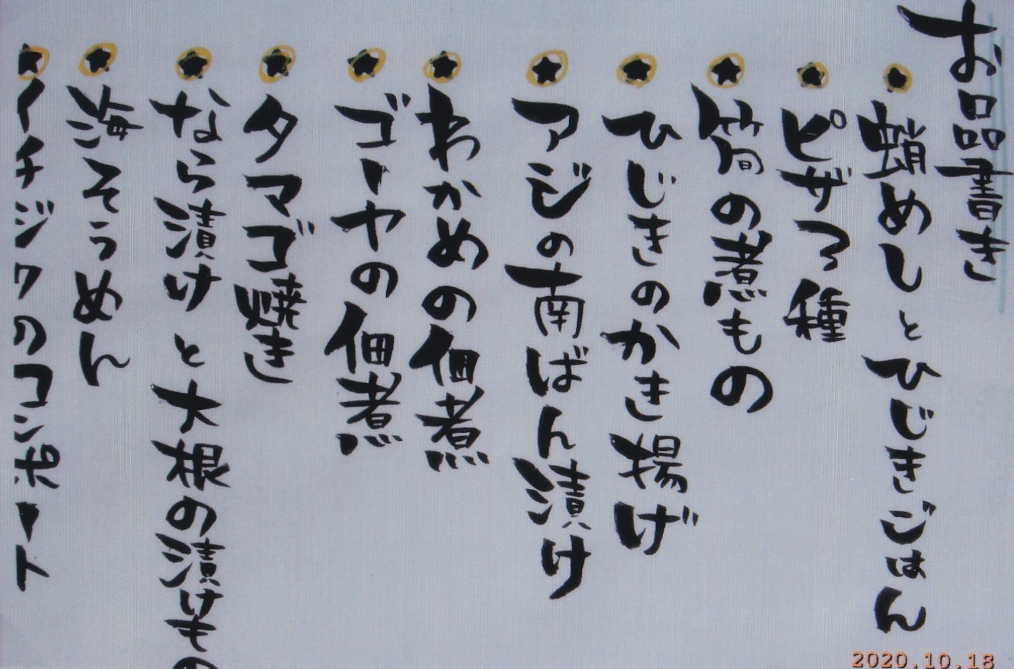 お品書き
蛸めしとひじきごはん
ピザ3種
筍の煮もの
ひじきのかき揚げ
アジの南ばん漬け
わかめの佃煮
ゴーヤの佃煮
タマゴ焼き
なら漬けと大根の漬けもの
海そうめん
イチジクのコンポート
2020.10.18